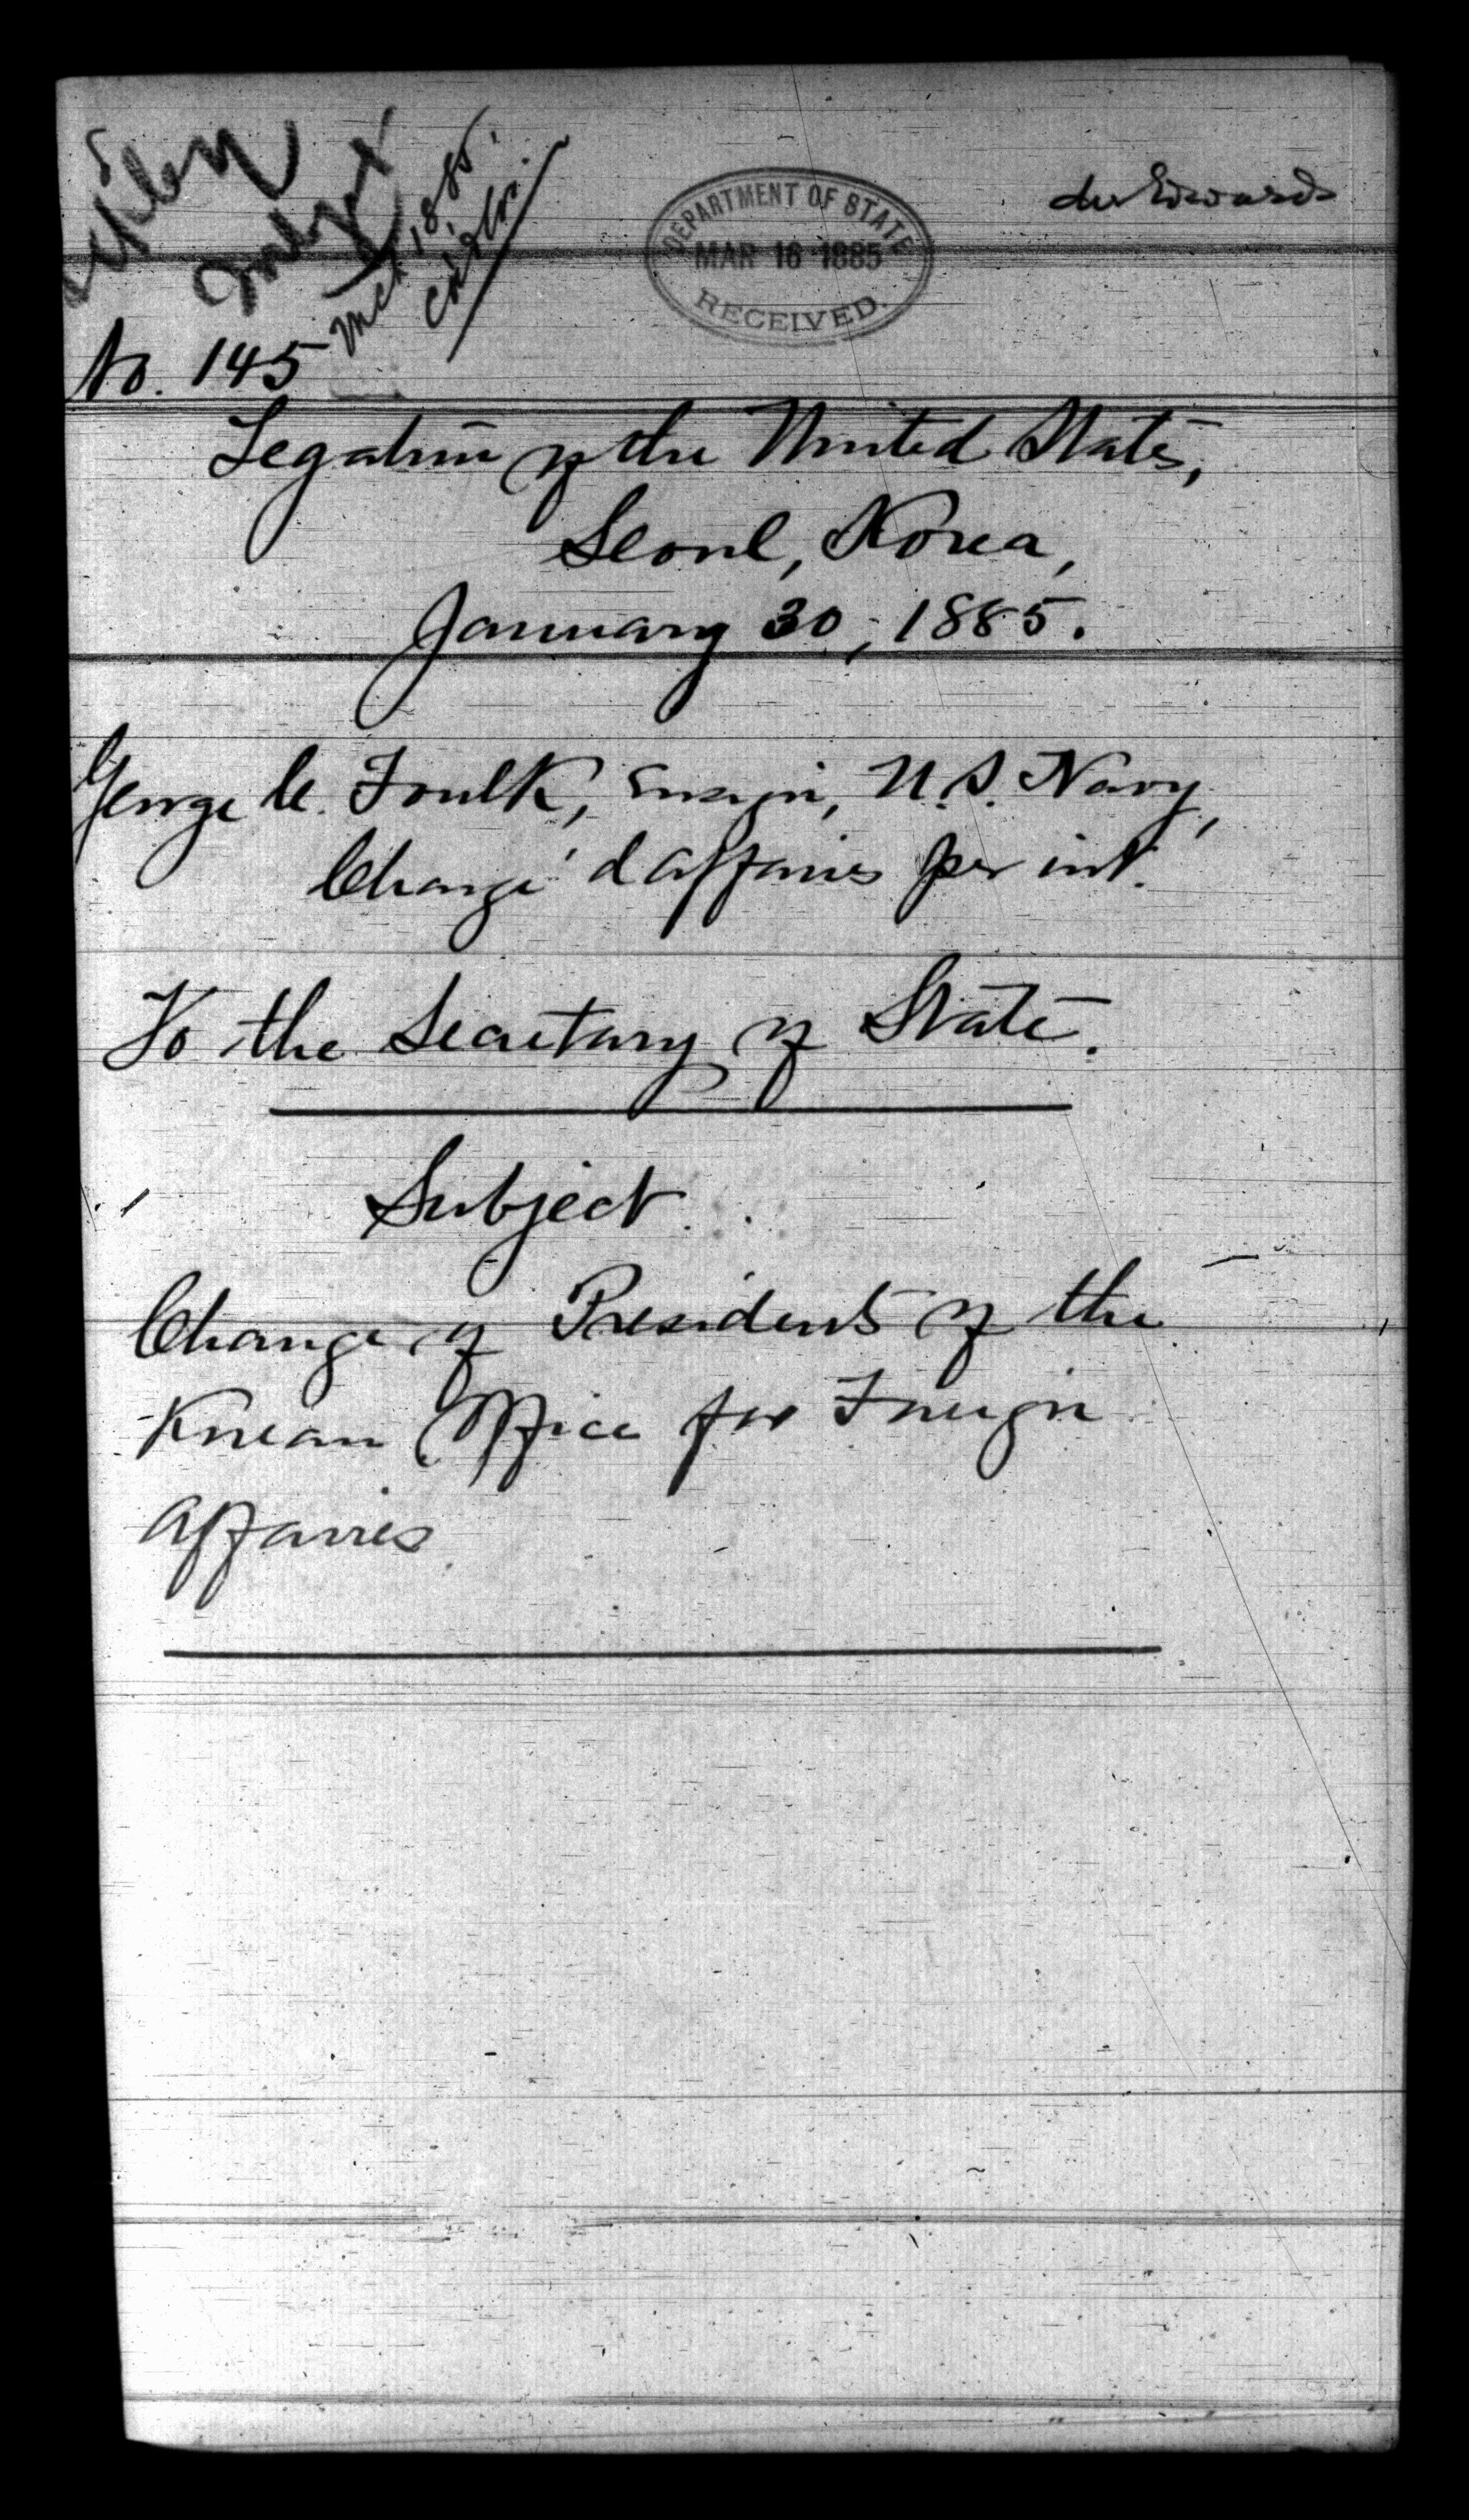 DEPARTMENT OF STATE
MAR 16 1885
RECEIVED.
No. 145
Legation of the United States,
Seoul, Korea,
January 30, 1885.
George C. Foulk, Ensign, U.S. Navy,
Chargé d'affaires per int.
To the Secretary of State.
Subject.
Change of Presidents of the
Korean Office for Foreign
Affairs.